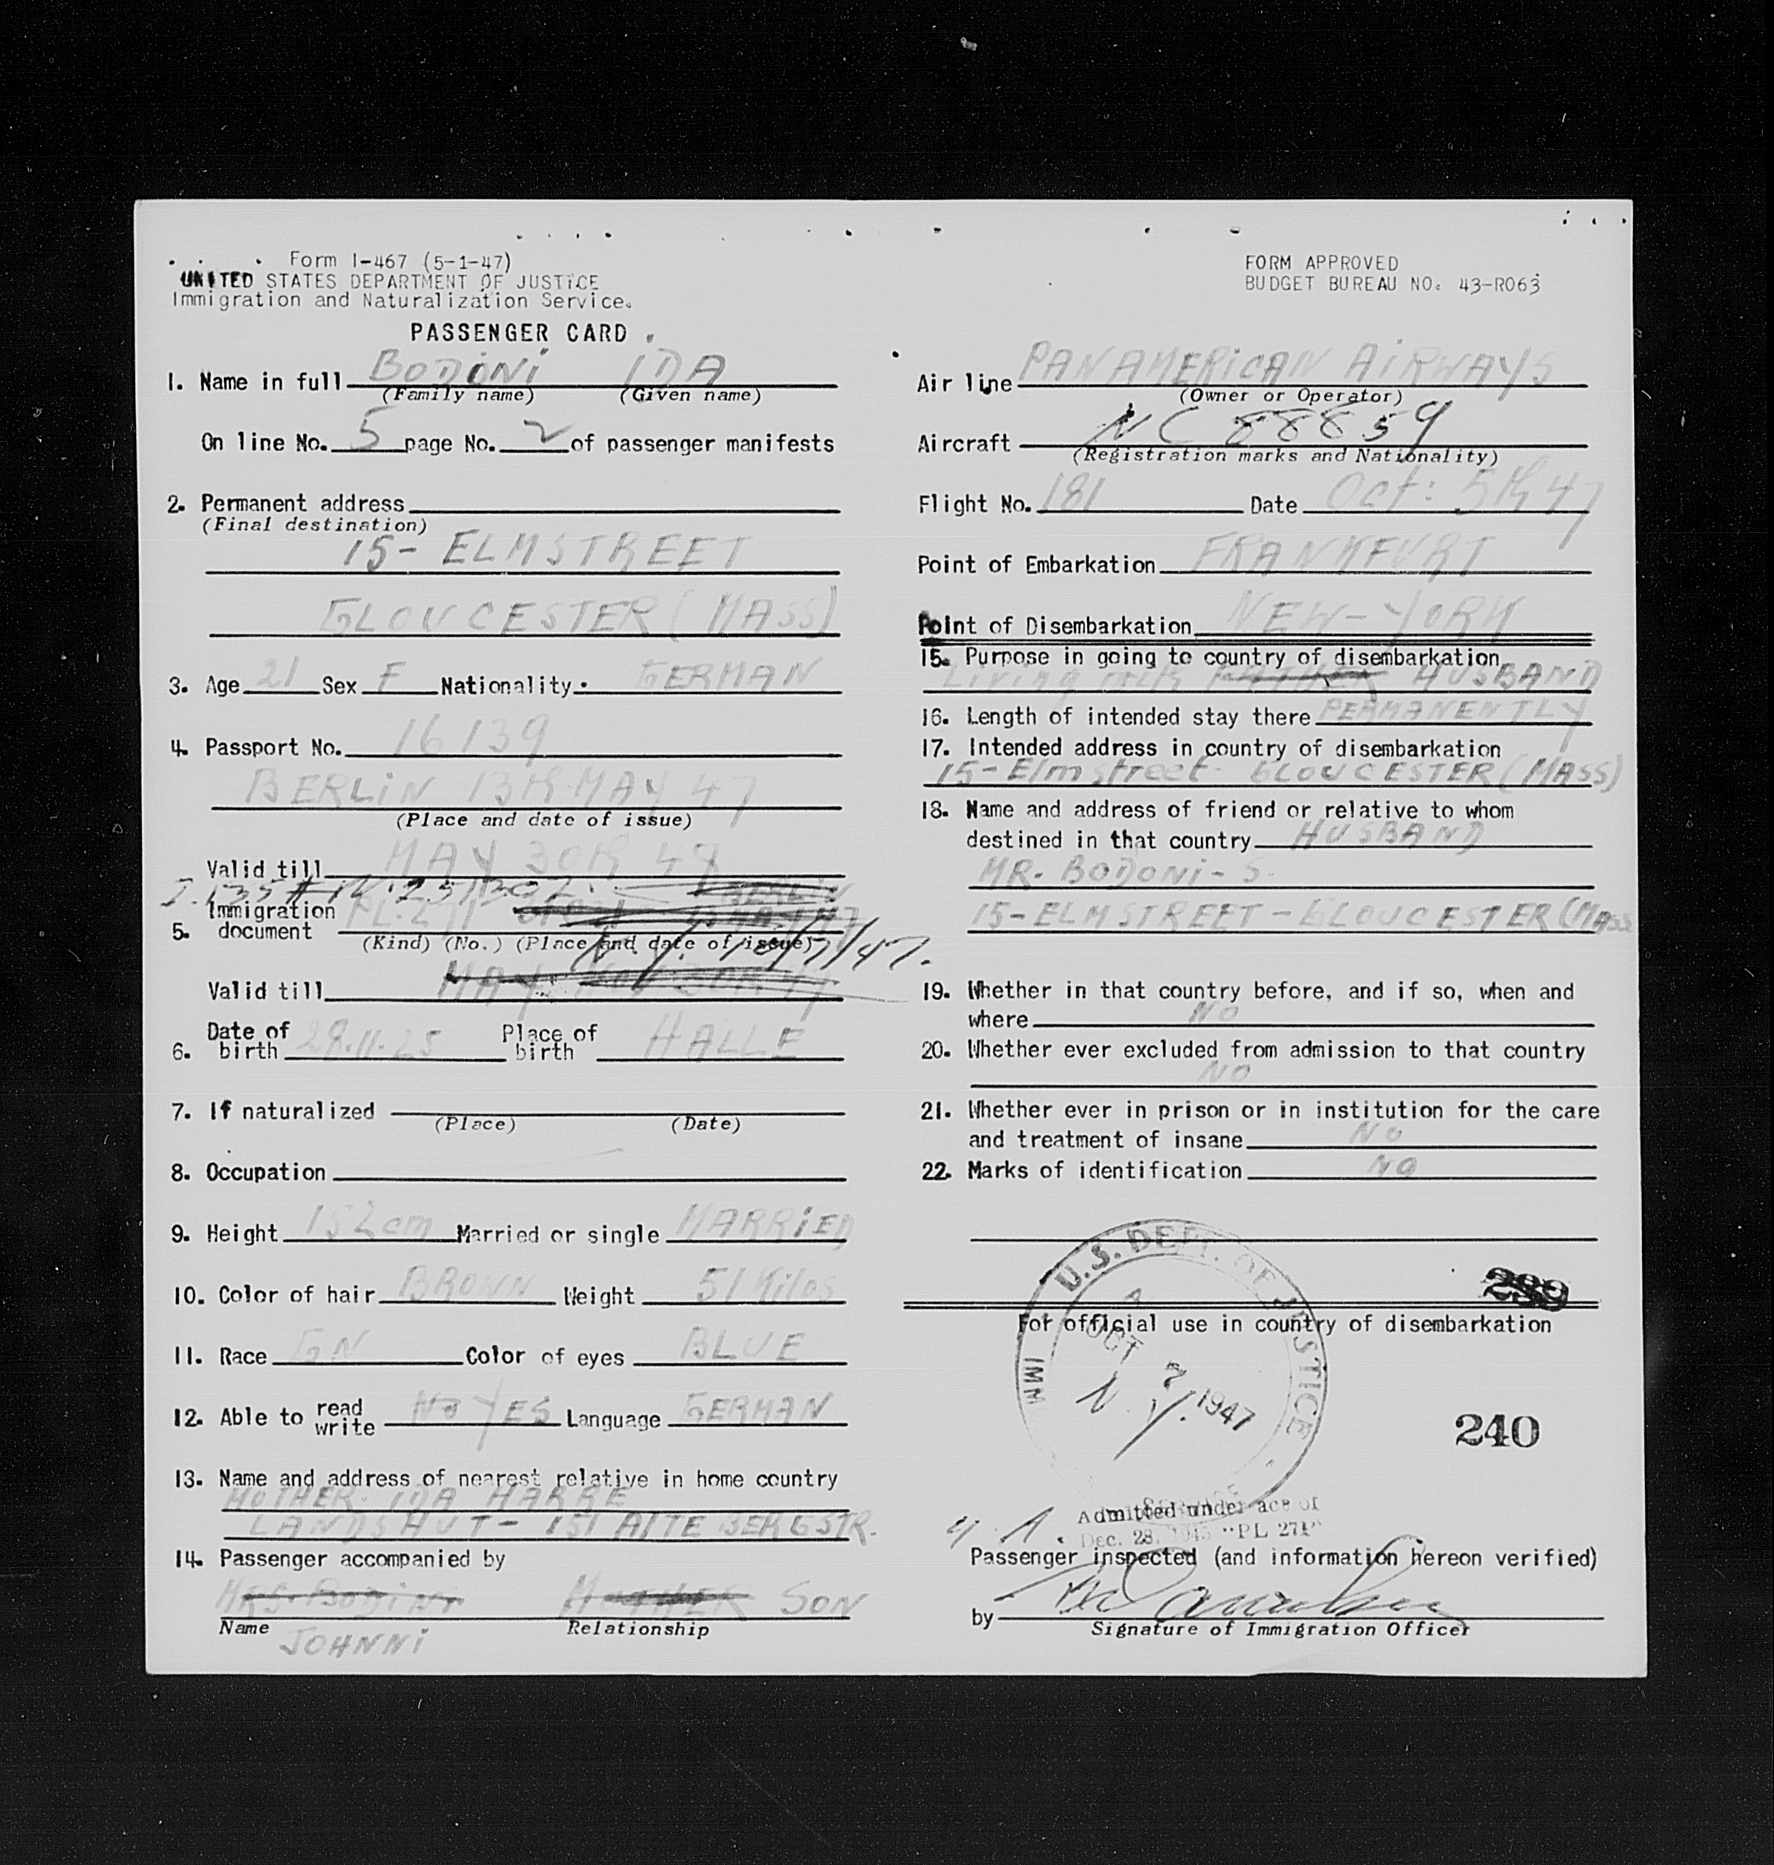 Form I-467 (5-1-47)
UNITED STATES DEPARTMENT OF JUSTICE
Immigration and Naturalization Service.
PASSENGER CARD
1. Name in full BODONI IDA
(Family name) (Given name)
On line No. 5 page No. 2 of passenger manifests
2. Permanent address
(Final destination)
15- ELMSTREET
GLOUCESTER (MASS)
3. Age 21 Sex F Nationality GERMAN
4. Passport No. 16139
BERLIN 13th MAY 47
(Place and date of issue)
Valid till MAY 30th 48
5. Immigration document PL. 271 BERLIN
(Kind) (No.) (Place and date of issue)
N.Y. 10/7/47.
Valid till MAY
6. Date of birth 28.11.25 Place of birth HALLE
7. If naturalized
(Place) (Date)
8. Occupation
9. Height 152 cm Married or single MARRIED
10. Color of hair BROWN Weight 51 Kilos
11. Race GN Color of eyes BLUE
12. Able to read write NO YES Language GERMAN
13. Name and address of nearest relative in home country
MOTHER IDA HARRE
LANDSHUT - 151 ALTE BERGSTR.
14. Passenger accompanied by
MRS. BODINI MOTHER SON
Name Relationship
JOHNNI
FORM APPROVED
BUDGET BUREAU NO. 43-R063
Air line PANAMERICAN AIRWAYS
(Owner or Operator)
Aircraft NC 88859
(Registration marks and Nationality)
Flight No. 181 Date Oct: 5th 47
Point of Embarkation FRANKFURT
Point of Disembarkation NEW-YORK
15. Purpose in going to country of disembarkation
Living FATHER HUSBAND
16. Length of intended stay there PERMANENTLY
17. Intended address in country of disembarkation
15-Elmstreet GLOUCESTER (MASS)
18. Name and address of friend or relative to whom
destined in that country HUSBAND
MR. BODONI-S.
15-ELMSTREET-GLOUCESTER (MASS
19. Whether in that country before, and if so, when and
where NO
20. Whether ever excluded from admission to that country
NO
21. Whether ever in prison or in institution for the care
and treatment of insane NO
22. Marks of identification NO
239
For official use in country of disembarkation
U.S. DEPT. OF JUSTICE
IMM
A
OCT 7 1947
N.Y.
SERVICE
240
Admitted under act of
Dec. 28, 1945 "PL 271"
Passenger inspected (and information hereon verified)
by
Signature of Immigration Officer